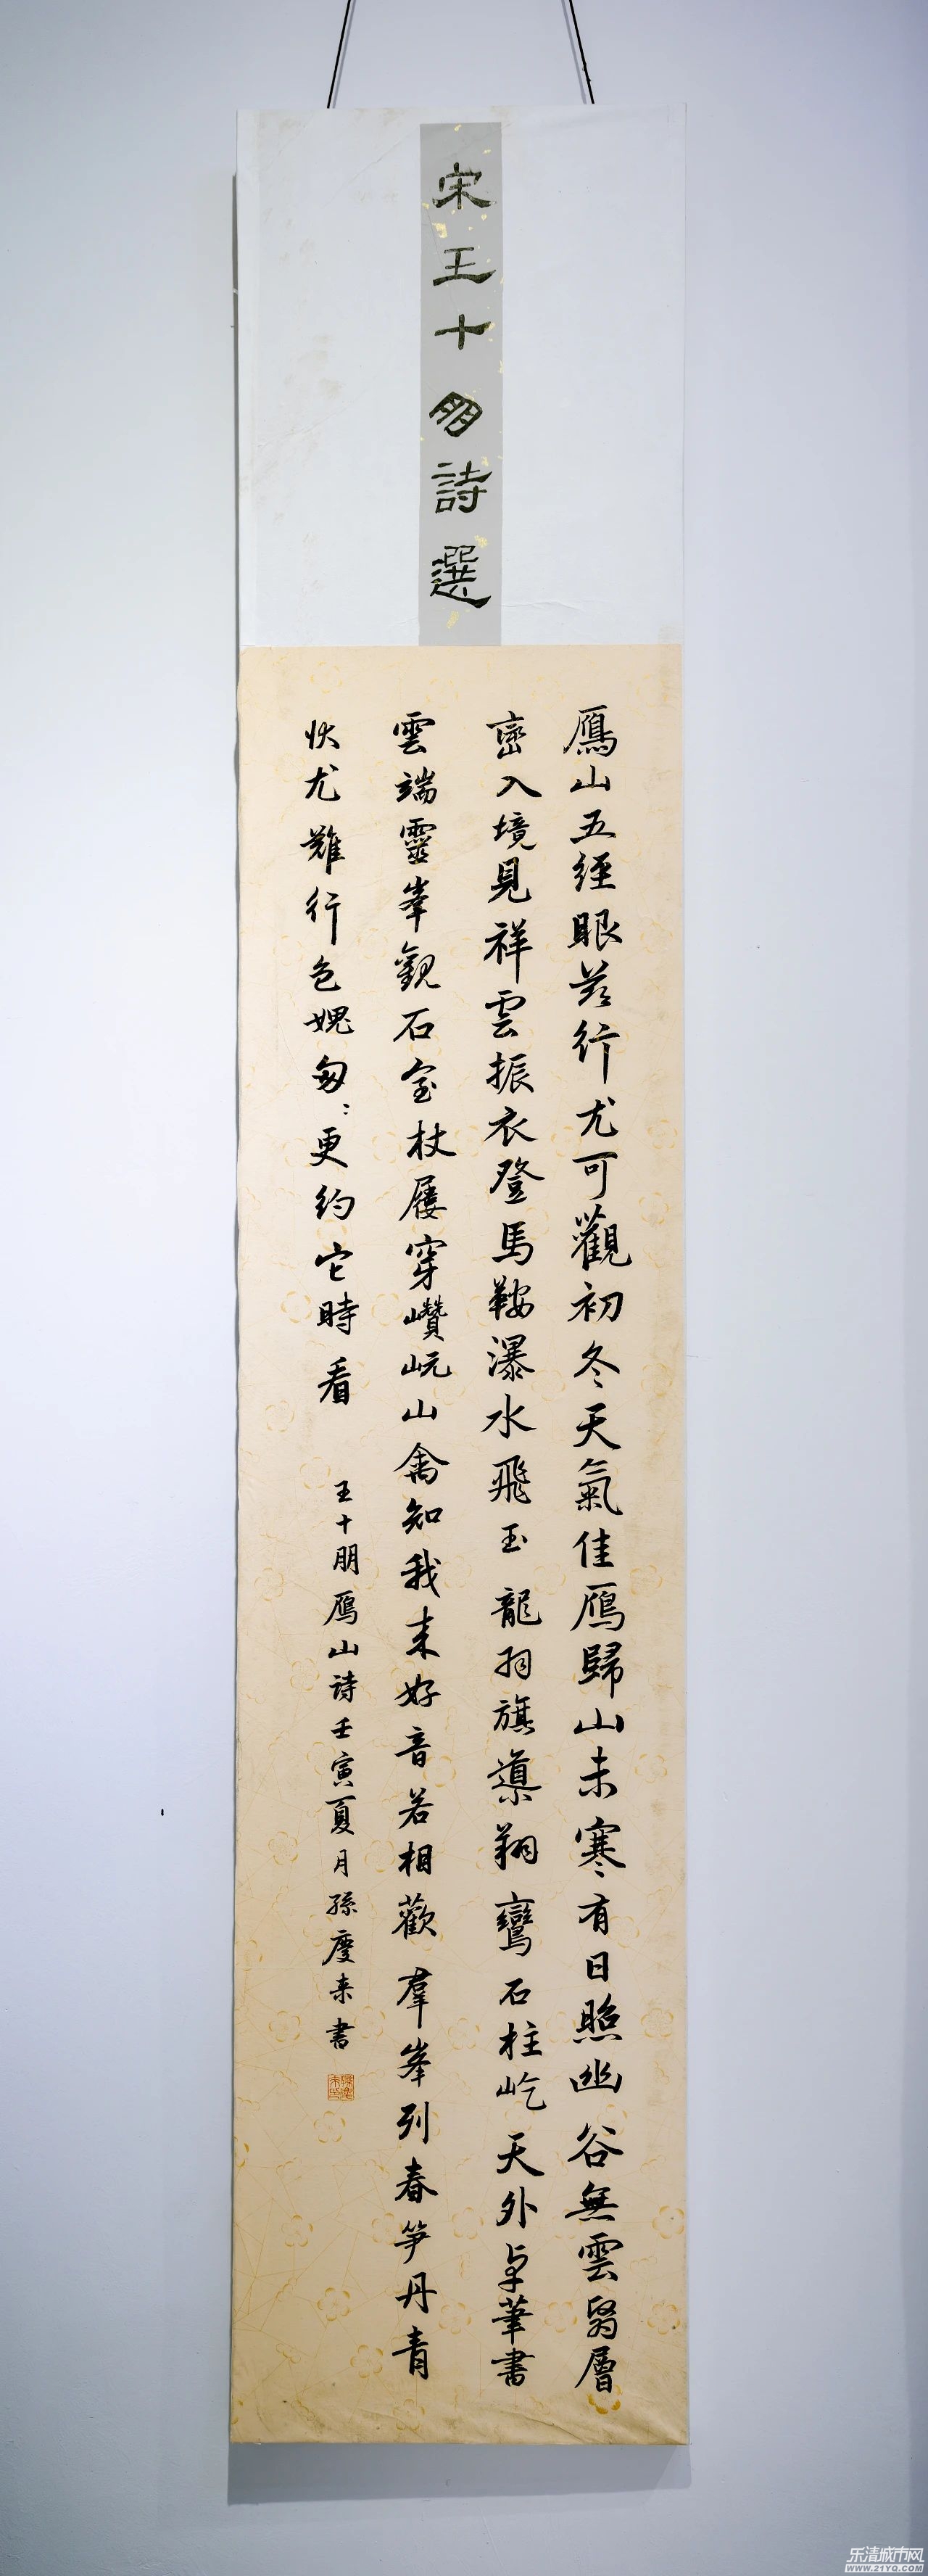 宋王十朋詩選
鴈山五經眼茲行尤可觀初冬天氣佳鴈歸山未寒有日照幽谷無雲翳層
巒入境見祥雲振衣登馬鞍瀑水飛玉龍羽旗導翔鸞石柱屹天外卓筆書
雲端靈峯觀石室杖屨穿巑岏山禽知我来好音若相歡羣峯列春笋丹青
狀尤難行色媿匆〻更約它時看
王十朋鴈山詩壬寅夏月孫慶来書
乐清城市网
WWW.21YQ.COM